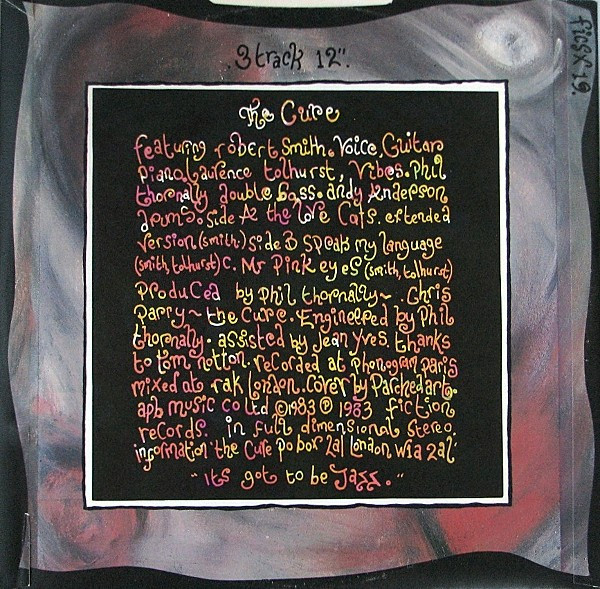 3 track 12".
ficsx 19.
The Cure
featuring robert Smith. Voice, Guitar
piano, Laurence tolhurst, vibes. Phil
thornally double bass. andy Anderson
drums. side A the love Cats. extended
version (smith) side B speak my language
(smith, tolhurst) C. Mr Pink eyes (smith, tolhurst)
Produced by phil thornally~ .Chris
Parry ~ the Cure. Engineered by Phil
thornally. assisted by Jean Yves. thanks
to tom notton. recorded at phonogram paris
mixed at rak London. Cover by Parchedart.
apb music co Ltd ©1983 ℗ 1983 fiction
records. in full dimensional stereo.
information the Cure po box 2al London W1a 2al.
"Its got to be Jazz."